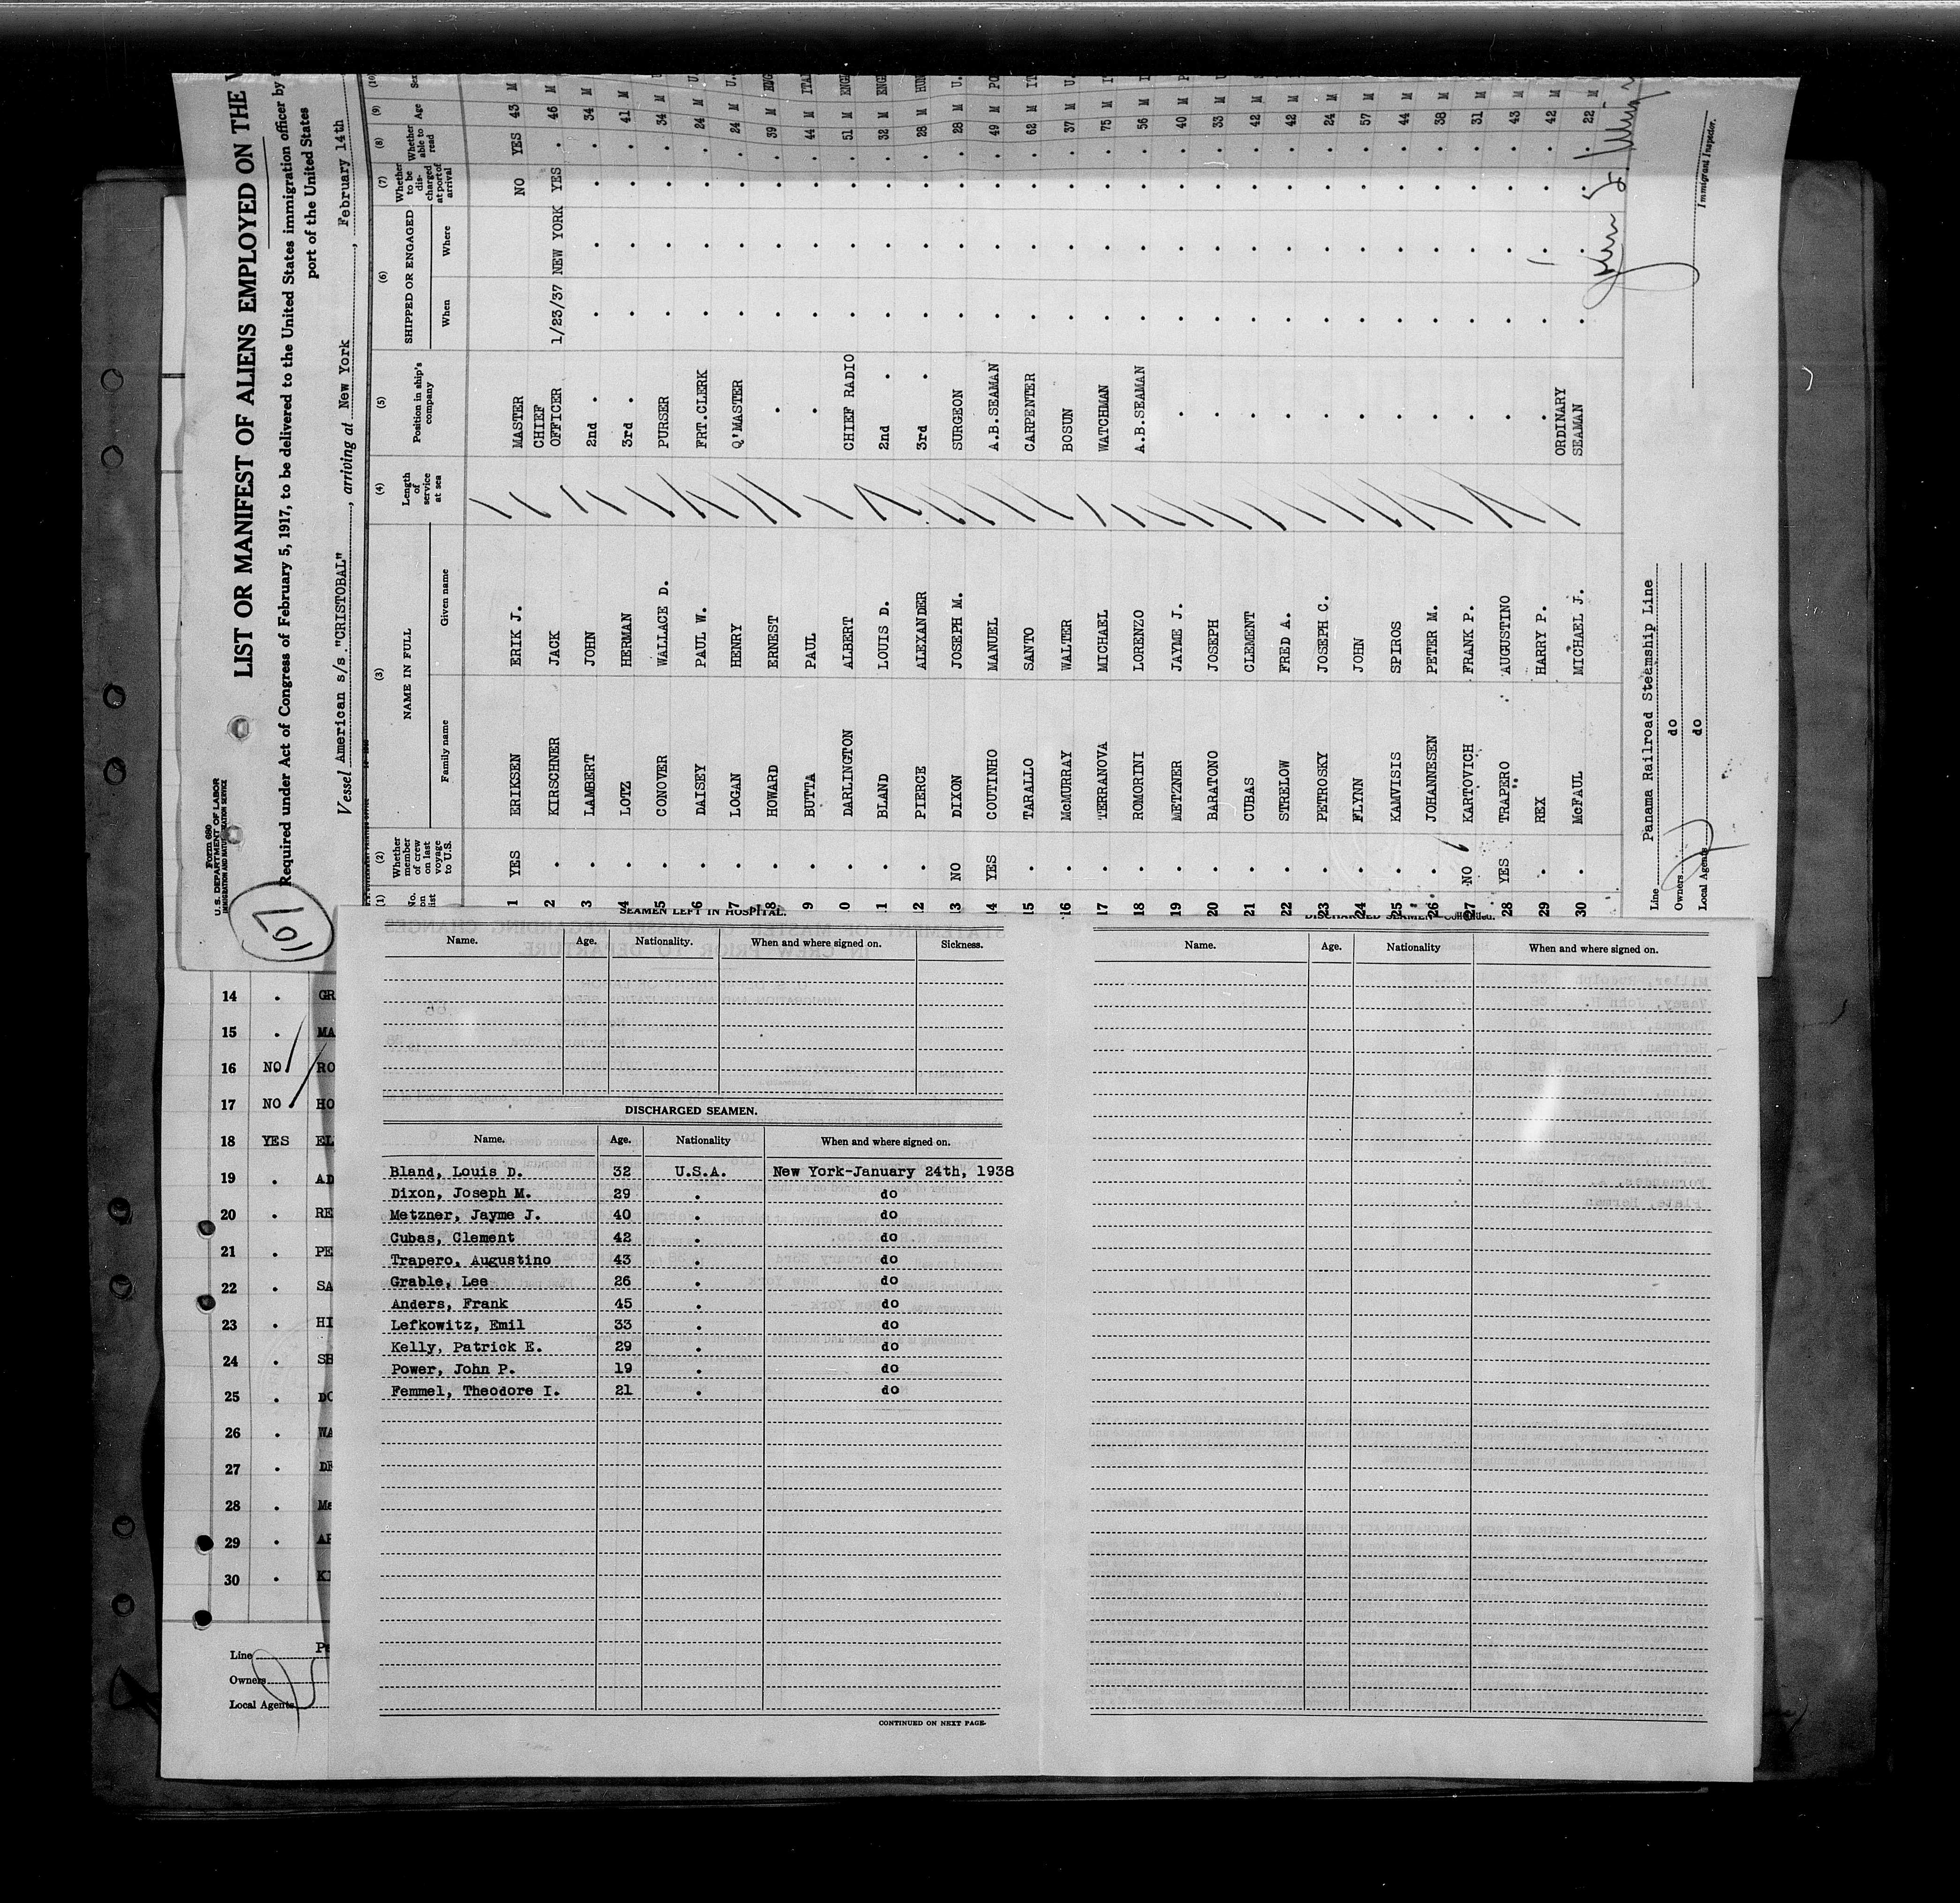 Form 680
U. S. DEPARTMENT OF LABOR
IMMIGRATION AND NATURALIZATION SERVICE
107
LIST OR MANIFEST OF ALIENS EMPLOYED ON THE
Required under Act of Congress of February 5, 1917, to be delivered to the United States immigration officer by
port of the United States
Vessel American s/s "CRISTOBAL", arriving at New York, February 14th
(1) (2) (3) (4) (5) (6) (7) (8) (9) (10
No. on list Whether member of crew on last voyage to U.S. NAME IN FULL Length of service at sea Position in ship's company SHIPPED OR ENGAGED Whether to be discharged at port of arrival Whether able to read Age Sex
Family name Given name When Where
1 YES ERIKSEN ERIK J. MASTER NO YES 43 M
2 . KIRSCHNER JACK CHIEF OFFICER 1/23/37 NEW YORK YES . 46 M
3 . LAMBERT JOHN 2nd . . . . . 34 M
4 . LOTZ HERMAN 3rd . . . . . 41 M
5 . CONOVER WALLACE D. PURSER . . . . 34 M U
6 . DAISEY PAUL W. FRT.CLERK . . . . 24 M U.
7 . LOGAN HENRY Q'MASTER . . . . 24 M U.
8 . HOWARD ERNEST . . . . . 39 M ENG
9 . BUTTA PAUL . . . . . 44 M ITA
0 . DARLINGTON ALBERT CHIEF RADIO . . . . 51 M ENG
11 . BLAND LOUIS D. 2nd . . . . . 32 M ENG
12 . PIERCE ALEXANDER 3rd . . . . . 28 M HUN
13 NO DIXON JOSEPH M. SURGEON . . . . 28 M U.
14 YES COUTINHO MANUEL A.B.SEAMAN . . . . 49 M PO
15 . TARALLO SANTO CARPENTER . . . . 62 M IT
16 . McMURRAY WALTER BOSUN . . . . 37 M U.
17 . TERRANOVA MICHAEL WATCHMAN . . . . 75 M I
18 . ROMORINI LORENZO A.B.SEAMAN . . . . 56 M I
19 . METZNER JAYME J. . . . . . 40 M P
20 . BARATONO JOSEPH . . . . . 33 M
21 . CUBAS CLEMENT . . . . . 42 M
22 . STRELOW FRED A. . . . . . 42 M
23 . PETROSKY JOSEPH C. . . . . . 24 M
24 . FLYNN JOHN . . . . . 57 M
25 . KAMVISIS SPIROS . . . . . 44 M
26 . JOHANNESEN PETER M. . . . . . 38 M
27 NO KARTOVICH FRANK P. . . . . . 31 M
28 YES TRAPERO AUGUSTINO . . . . . 43 M
29 . REX HARRY P. . . . . . 42 M
30 . McFAUL MICHAEL J. ORDINARY SEAMAN . . . . 22 M
Line Panama Railroad Steamship Line
Owners do
Local Agents do
Immigrant Inspector.
14 . GR
15 . MA
16 NO RO
17 NO HO
18 YES EL
19 . AD
20 . RE
21 . PE
22 . SA
23 . HI
24 . SH
25 . DO
26 . WA
27 . DE
28 . Mc
29 . AR
30 . KI
Line
Owners
Local Agents
SEAMEN LEFT IN HOSPITAL.
Name. Age. Nationality. When and where signed on. Sickness.
DISCHARGED SEAMEN.
Name. Age. Nationality When and where signed on.
Bland, Louis D. 32 U.S.A. New York-January 24th, 1938
Dixon, Joseph M. 29 . do
Metzner, Jayme J. 40 . do
Cubas, Clement 42 . do
Trapero, Augustino 43 . do
Grable, Lee 26 . do
Anders, Frank 45 . do
Lefkowitz, Emil 33 . do
Kelly, Patrick E. 29 . do
Power, John P. 19 . do
Femmel, Theodore I. 21 . do
CONTINUED ON NEXT PAGE.
DISCHARGED SEAMEN—Continued.
Name. Age. Nationality When and where signed on.